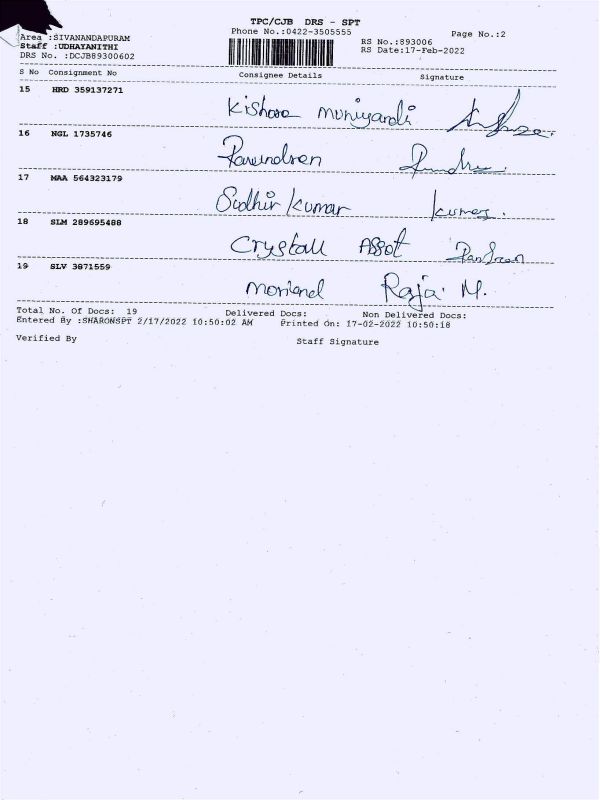 TPC/CJB DRS - SPT
Phone No.:0422-3505555
Page No.:2
Area :SIVANANDAPURAM
RS No.:893006
Staff :UDHAYANITHI
RS Date:17-Feb-2022
DRS No. :DCJB89300602
S No Consignment No Consignee Details Signature
15 HRD 359137271 Kishore muniyandi
16 NGL 1735746
17 MAA 564323179 Sudhir Kumar Kumar.
18 SLM 289695488 Crystall Assot
19 SLV 3871559 Raja. M.
Total No. Of Docs: 19 Delivered Docs: Non Delivered Docs:
Entered By :SHARONSPT 2/17/2022 10:50:02 AM Printed On: 17-02-2022 10:50:18
Verified By Staff Signature